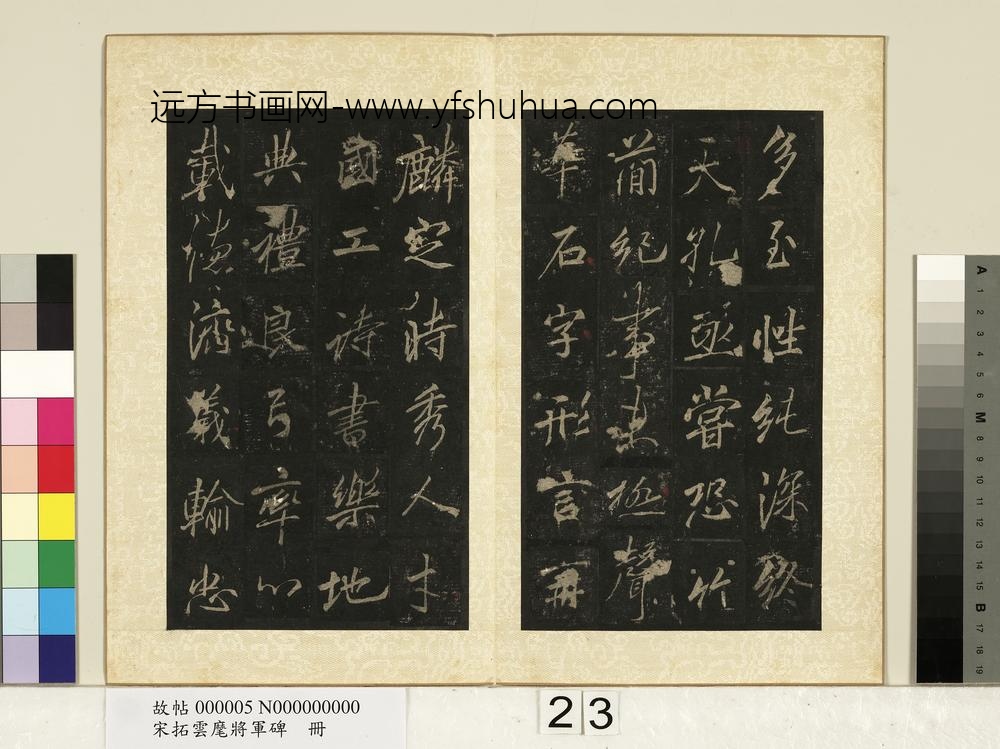 远方书画网-www.yfshuhua.com
多至性純深終
天孔亟嘗恐竹
簡紀事未極聲
華石字形言再
麟定時秀人才
國工詩書樂地
典禮良弓率心
載德濟義輸忠
A 1 2 3 4 5 6 M 8 9 10 11 12 13 14 15 B 17 18 19
故帖 000005 N000000000
宋拓雲麾將軍碑 冊
23